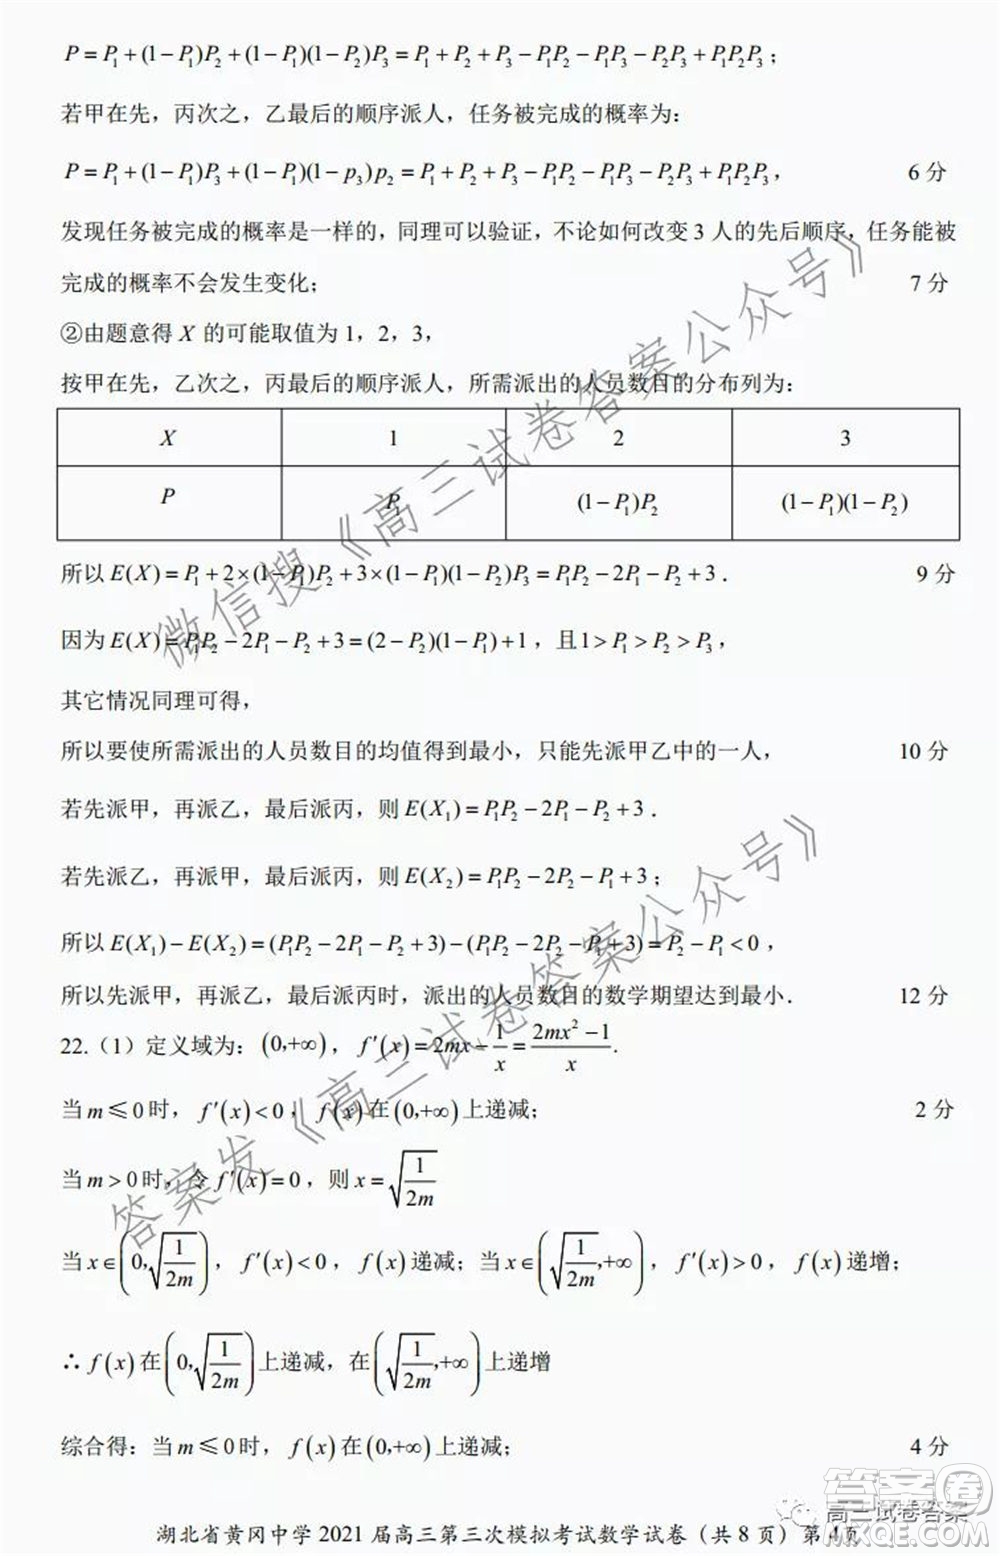 P=P₁+(1-P₁)P₂+(1-P₁)(1-P₂)P₃=P₁+P₂+P₃-P₁P₂-P₁P₃-P₂P₃+P₁P₂P₃；
若甲在先，丙次之，乙最后的顺序派人，任务被完成的概率为：
P=P₁+(1-P₁)P₃+(1-P₁)(1-p₃)p₂=P₁+P₂+P₃-P₁P₂-P₁P₃-P₂P₃+P₁P₂P₃， 6 分
发现任务被完成的概率是一样的，同理可以验证，不论如何改变 3 人的先后顺序，任务能被
完成的概率不会发生变化； 7 分
②由题意得 X 的可能取值为 1，2，3，
按甲在先，乙次之，丙最后的顺序派人，所需派出的人员数目的分布列为：
X 1 2 3
P P₁ (1-P₁)P₂ (1-P₁)(1-P₂)
所以 E(X)=P₁+2×(1-P₁)P₂+3×(1-P₁)(1-P₂)P₃=P₁P₂-2P₁-P₂+3． 9 分
因为 E(X)=P₁P₂-2P₁-P₂+3=(2-P₂)(1-P₁)+1，且 1>P₁>P₂>P₃，
其它情况同理可得，
所以要使所需派出的人员数目的均值得到最小，只能先派甲乙中的一人， 10 分
若先派甲，再派乙，最后派丙，则 E(X₁)=P₁P₂-2P₁-P₂+3．
若先派乙，再派甲，最后派丙，则 E(X₂)=P₁P₂-2P₂-P₁+3；
所以 E(X₁)-E(X₂)=(P₁P₂-2P₁-P₂+3)-(P₁P₂-2P₂-P₁+3)=P₂-P₁<0，
所以先派甲，再派乙，最后派丙时，派出的人员数目的数学期望达到最小． 12 分
22.（1）定义域为：(0,+∞)，f′(x)=2mx-1/x=(2mx²-1)/x.
当 m≤0 时，f′(x)<0，f(x)在(0,+∞)上递减； 2 分
当 m>0 时，令 f′(x)=0，则 x=√(1/2m)
当 x∈(0,√(1/2m))，f′(x)<0，f(x)递减；当 x∈(√(1/2m),+∞)，f′(x)>0，f(x)递增；
∴f(x)在(0,√(1/2m))上递减，在(√(1/2m),+∞)上递增
综合得：当 m≤0 时，f(x)在(0,+∞)上递减； 4 分
湖北省黄冈中学 2021 届高三第三次模拟考试数学试卷（共 8 页）第 4页
微信搜《高三试卷答案公众号》
答案发《高三试卷答案公众号》
高三试卷答案
答案圈
MXQE.COM